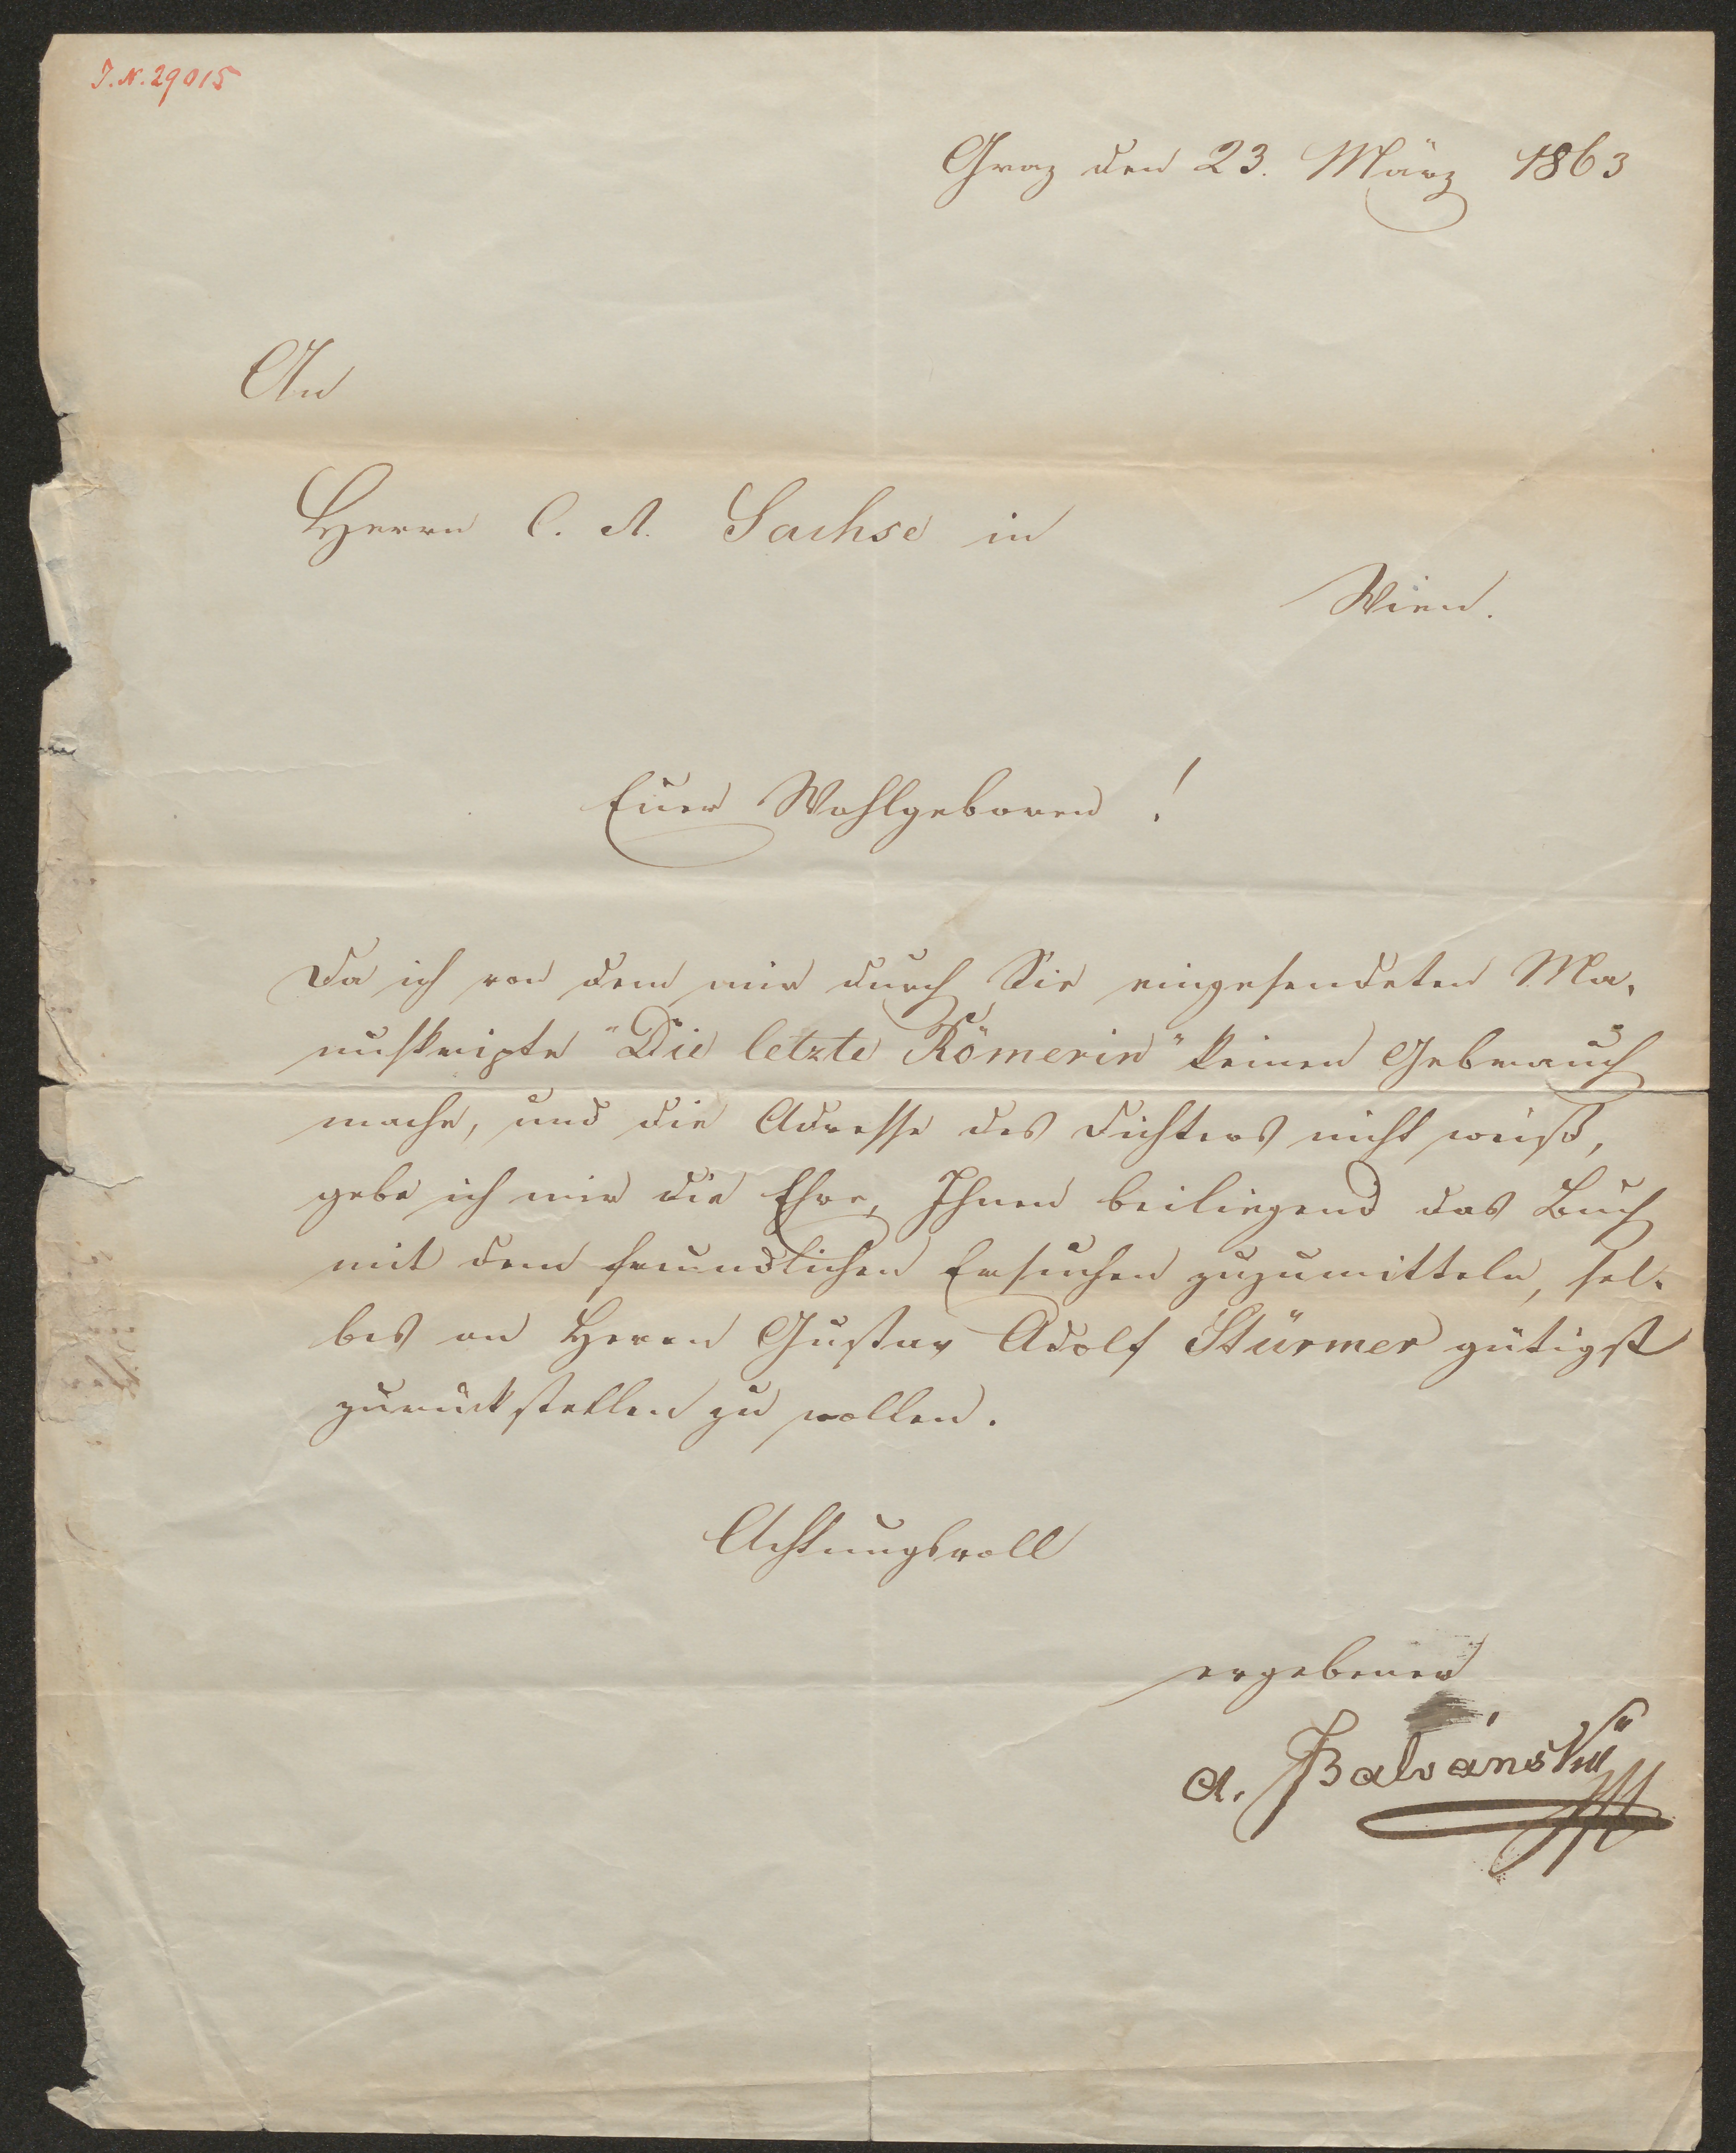 I.N. 29015
Graz den 23. März 1863
An
Herrn C. A. Sachse in
Wien.
Euer Wohlgeboren!
Da ich von dem mir durch Sie eingesendeten Ma-
nuskripte "Die letzte Römerin" keinen Gebrauch
mache, und die Adresse des Dichters nicht weiß,
gebe ich mir die Ehre, Ihnen beiliegend das Buch
mit dem freundlichen Ersuchen zuzumitteln, sel-
bes an Herrn Gustav Adolf Stürmer gütigst
zurückstellen zu wollen.
Achtungsvoll
ergebener
A. Balvánsky